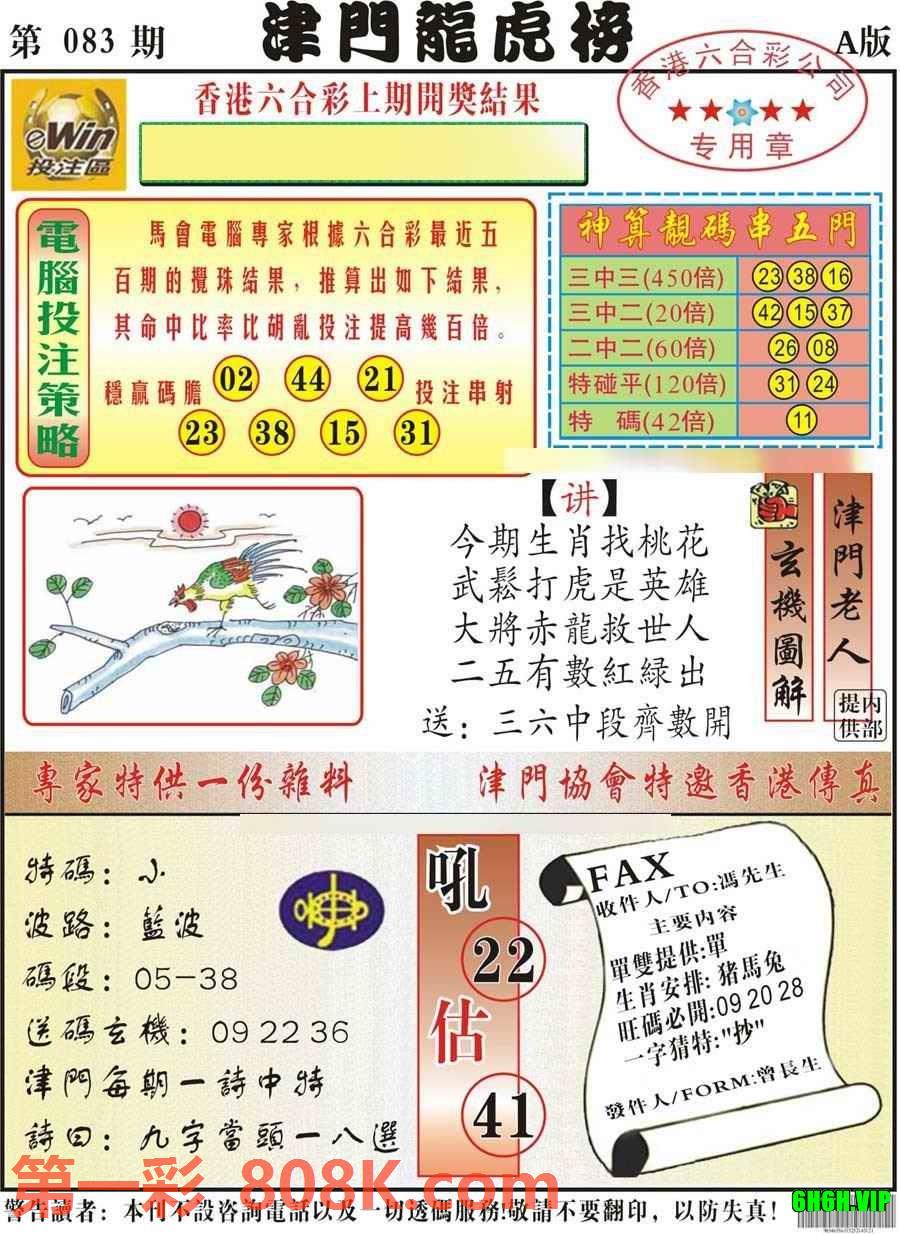 第 083 期
津門龍虎榜
A版
香港六合彩公司
专用章
eWin
投注區
香港六合彩上期開獎結果
電腦投注策略
馬會電腦專家根據六合彩最近五
百期的攪珠結果，推算出如下結果，
其命中比率比胡亂投注提高幾百倍。
穩贏碼膽 02 44 21 投注串射
23 38 15 31
神算靚碼串五門
三中三(450倍) 23 38 16
三中二(20倍) 42 15 37
二中二(60倍) 26 08
特碰平(120倍) 31 24
特 碼(42倍) 11
【讲】
今期生肖找桃花
武鬆打虎是英雄
大將赤龍救世人
二五有數紅緑出
送：三六中段齊數開
玄機圖解
津門老人
提供
内部
專家特供一份雜料
津門協會特邀香港傳真
特碼：小
波路：藍波
碼段：05-38
送碼玄機：09 22 36
津門每期一詩中特
詩曰：九字當頭一八選
吼
22
估
41
FAX
收件人/TO:馮先生
主要内容
單雙提供:單
生肖安排:猪馬兔
旺碼必開:09 20 28
一字猜特:"抄"
發件人/FORM:曾長生
第一彩 808K.com
警告讀者：本刊不設咨詢電話以及一切透碼服務!敬請不要翻印，以防失真!
6H6H.VIP